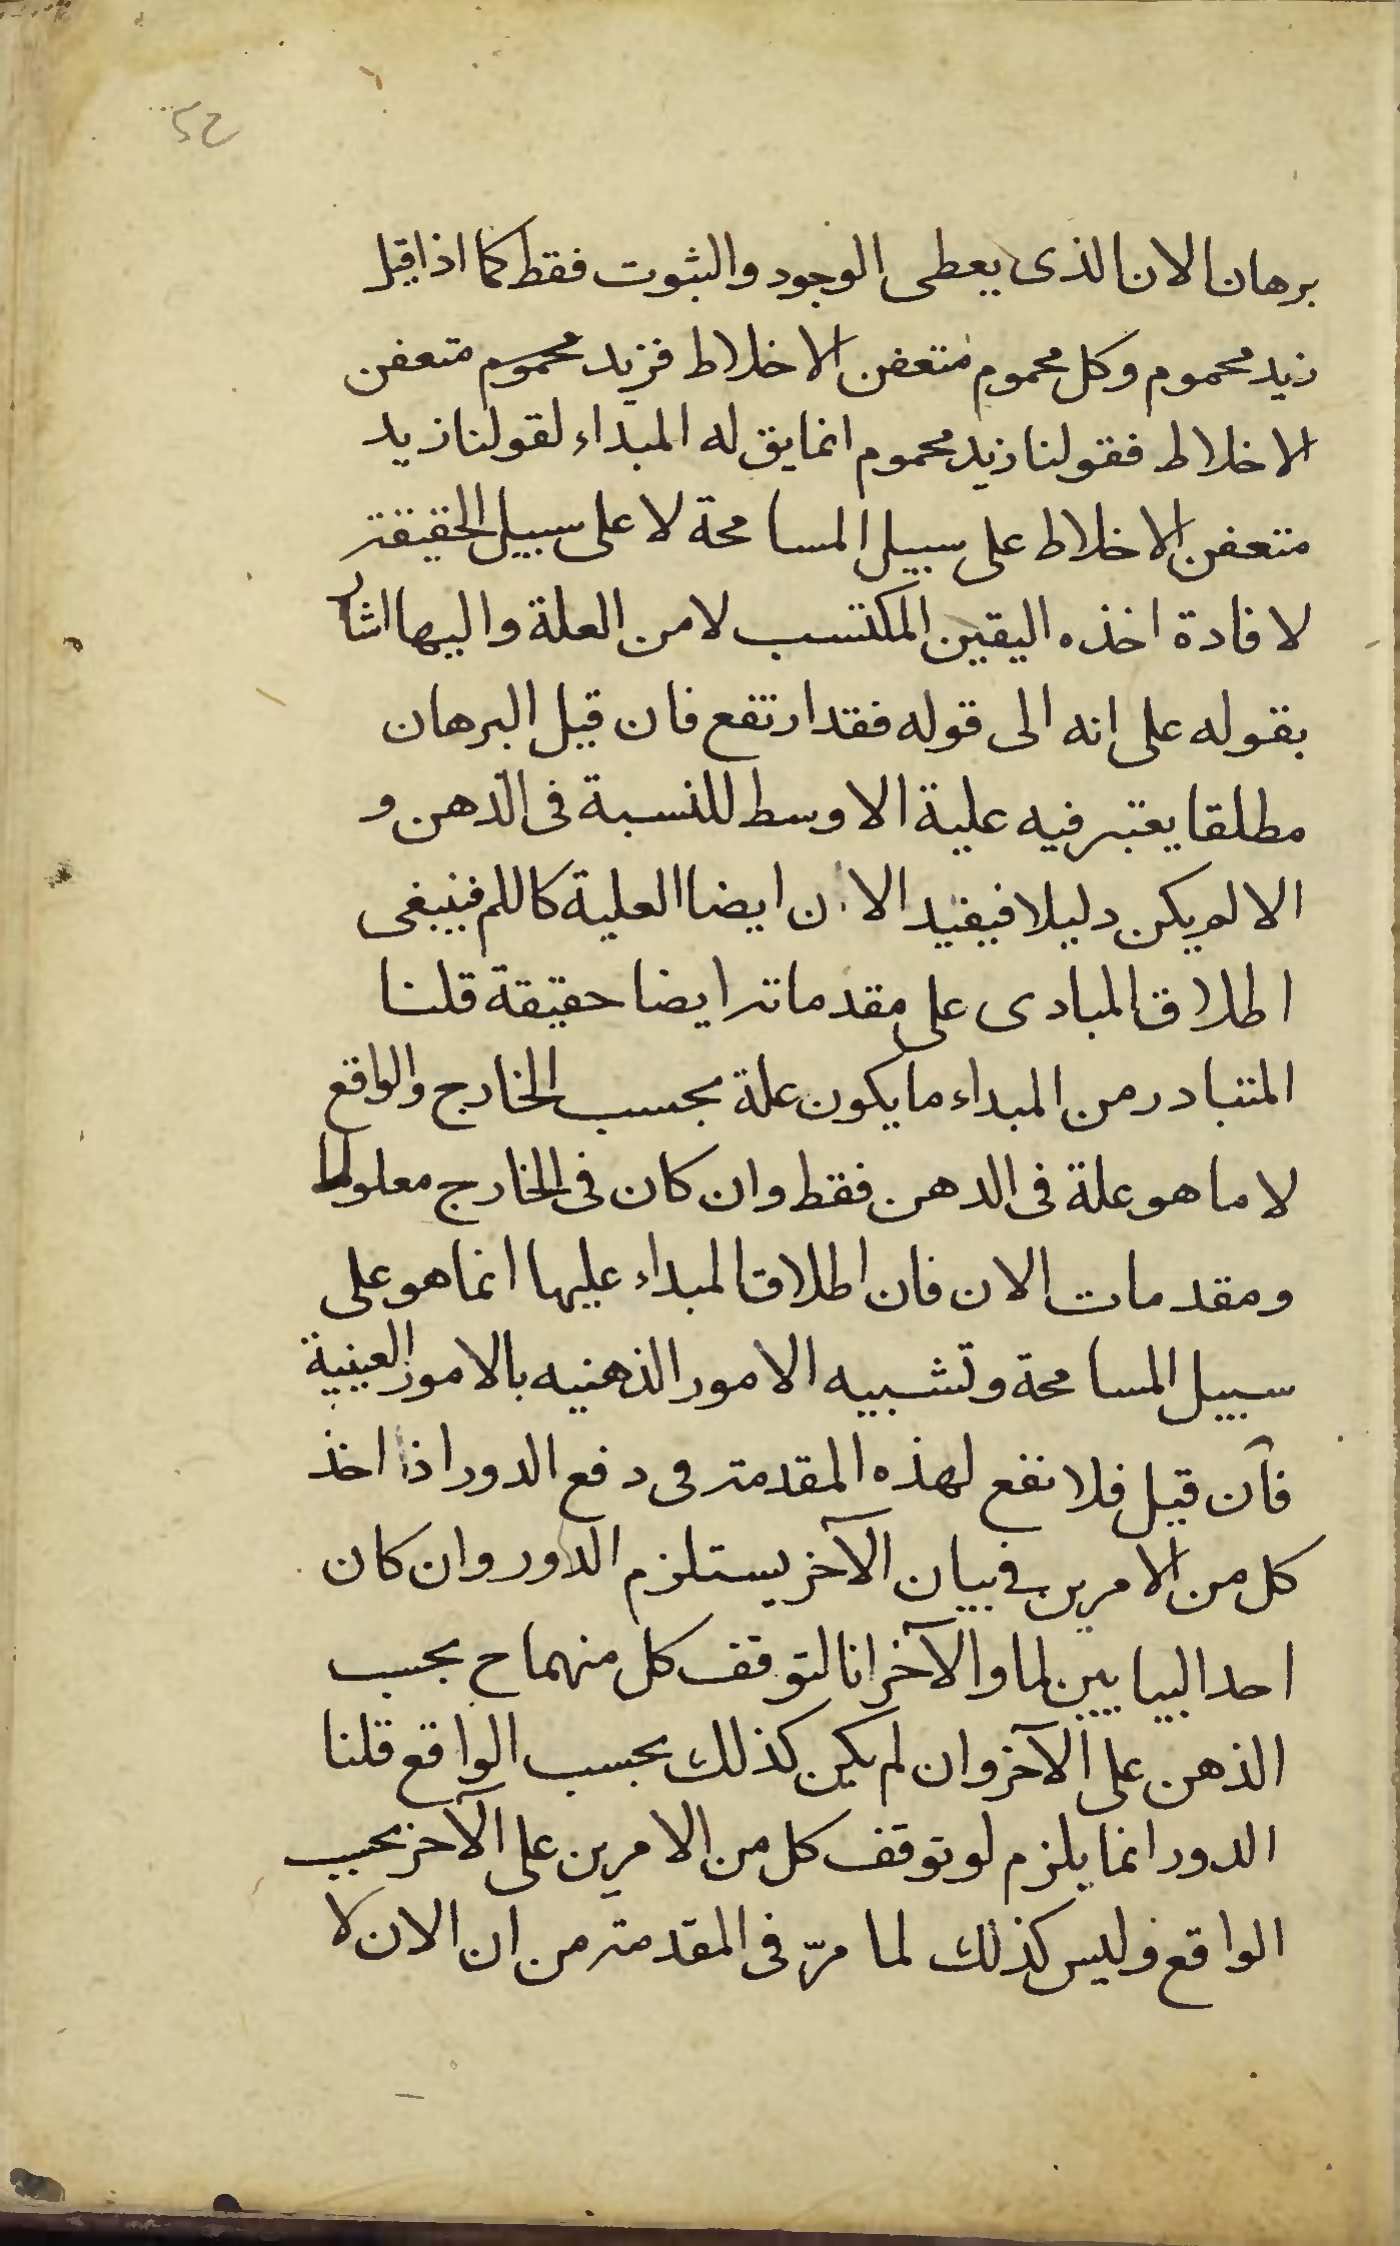 برهان الان الذى يعطى الوجود والثبوت فقط كما اذا قيل
زيد محموم وكل محموم متعفن الاخلاط فزيد محموم متعفن
الاخلاط فقولنا زيد محموم انما يق له المبداء لقولنا زيد
متعفن الاخلاط على سبيل المسامحة لا على سبيل الحقيقة
لافادة اخذه اليقين المكتسب لا من العلة واليها اشار
بقوله على انه الى قوله فقد ارتفع فان قيل البرهان
مطلقا يعتبر فيه علية الاوسط للنسبة فى الذهن و
الا لم يكن دليلا فيفيد الان ايضا العلية كاللم فينبغى
اطلاق المبادى على مقدماته ايضا حقيقة قلنا
المتبادر من المبداء ما يكون علة بحسب الخارج والواقع
لا ما هو علة فى الدهن فقط وان كان فى الخارج معلولا
ومقدمات الان فان اطلاق المبداء عليها انما هو على
سبيل المسامحة وتشبيه الامور الذهنيه بالامور العينية
فان قيل فلا نفع لهذه المقدمة فى دفع الدور اذا اخذ
كل من الامرين فى بيان الآخر يستلزم الدور وان كان
احد البيايين لما والآخر انا لتوقف كل منهما ح بحسب
الذهن على الآخر وان لم يكن كذلك بحسب الواقع قلنا
الدور انما يلزم لو توقف كل من الامرين على الآخر بحسب
الواقع وليس كذلك لما مرّ فى المقدمة من ان الان لا